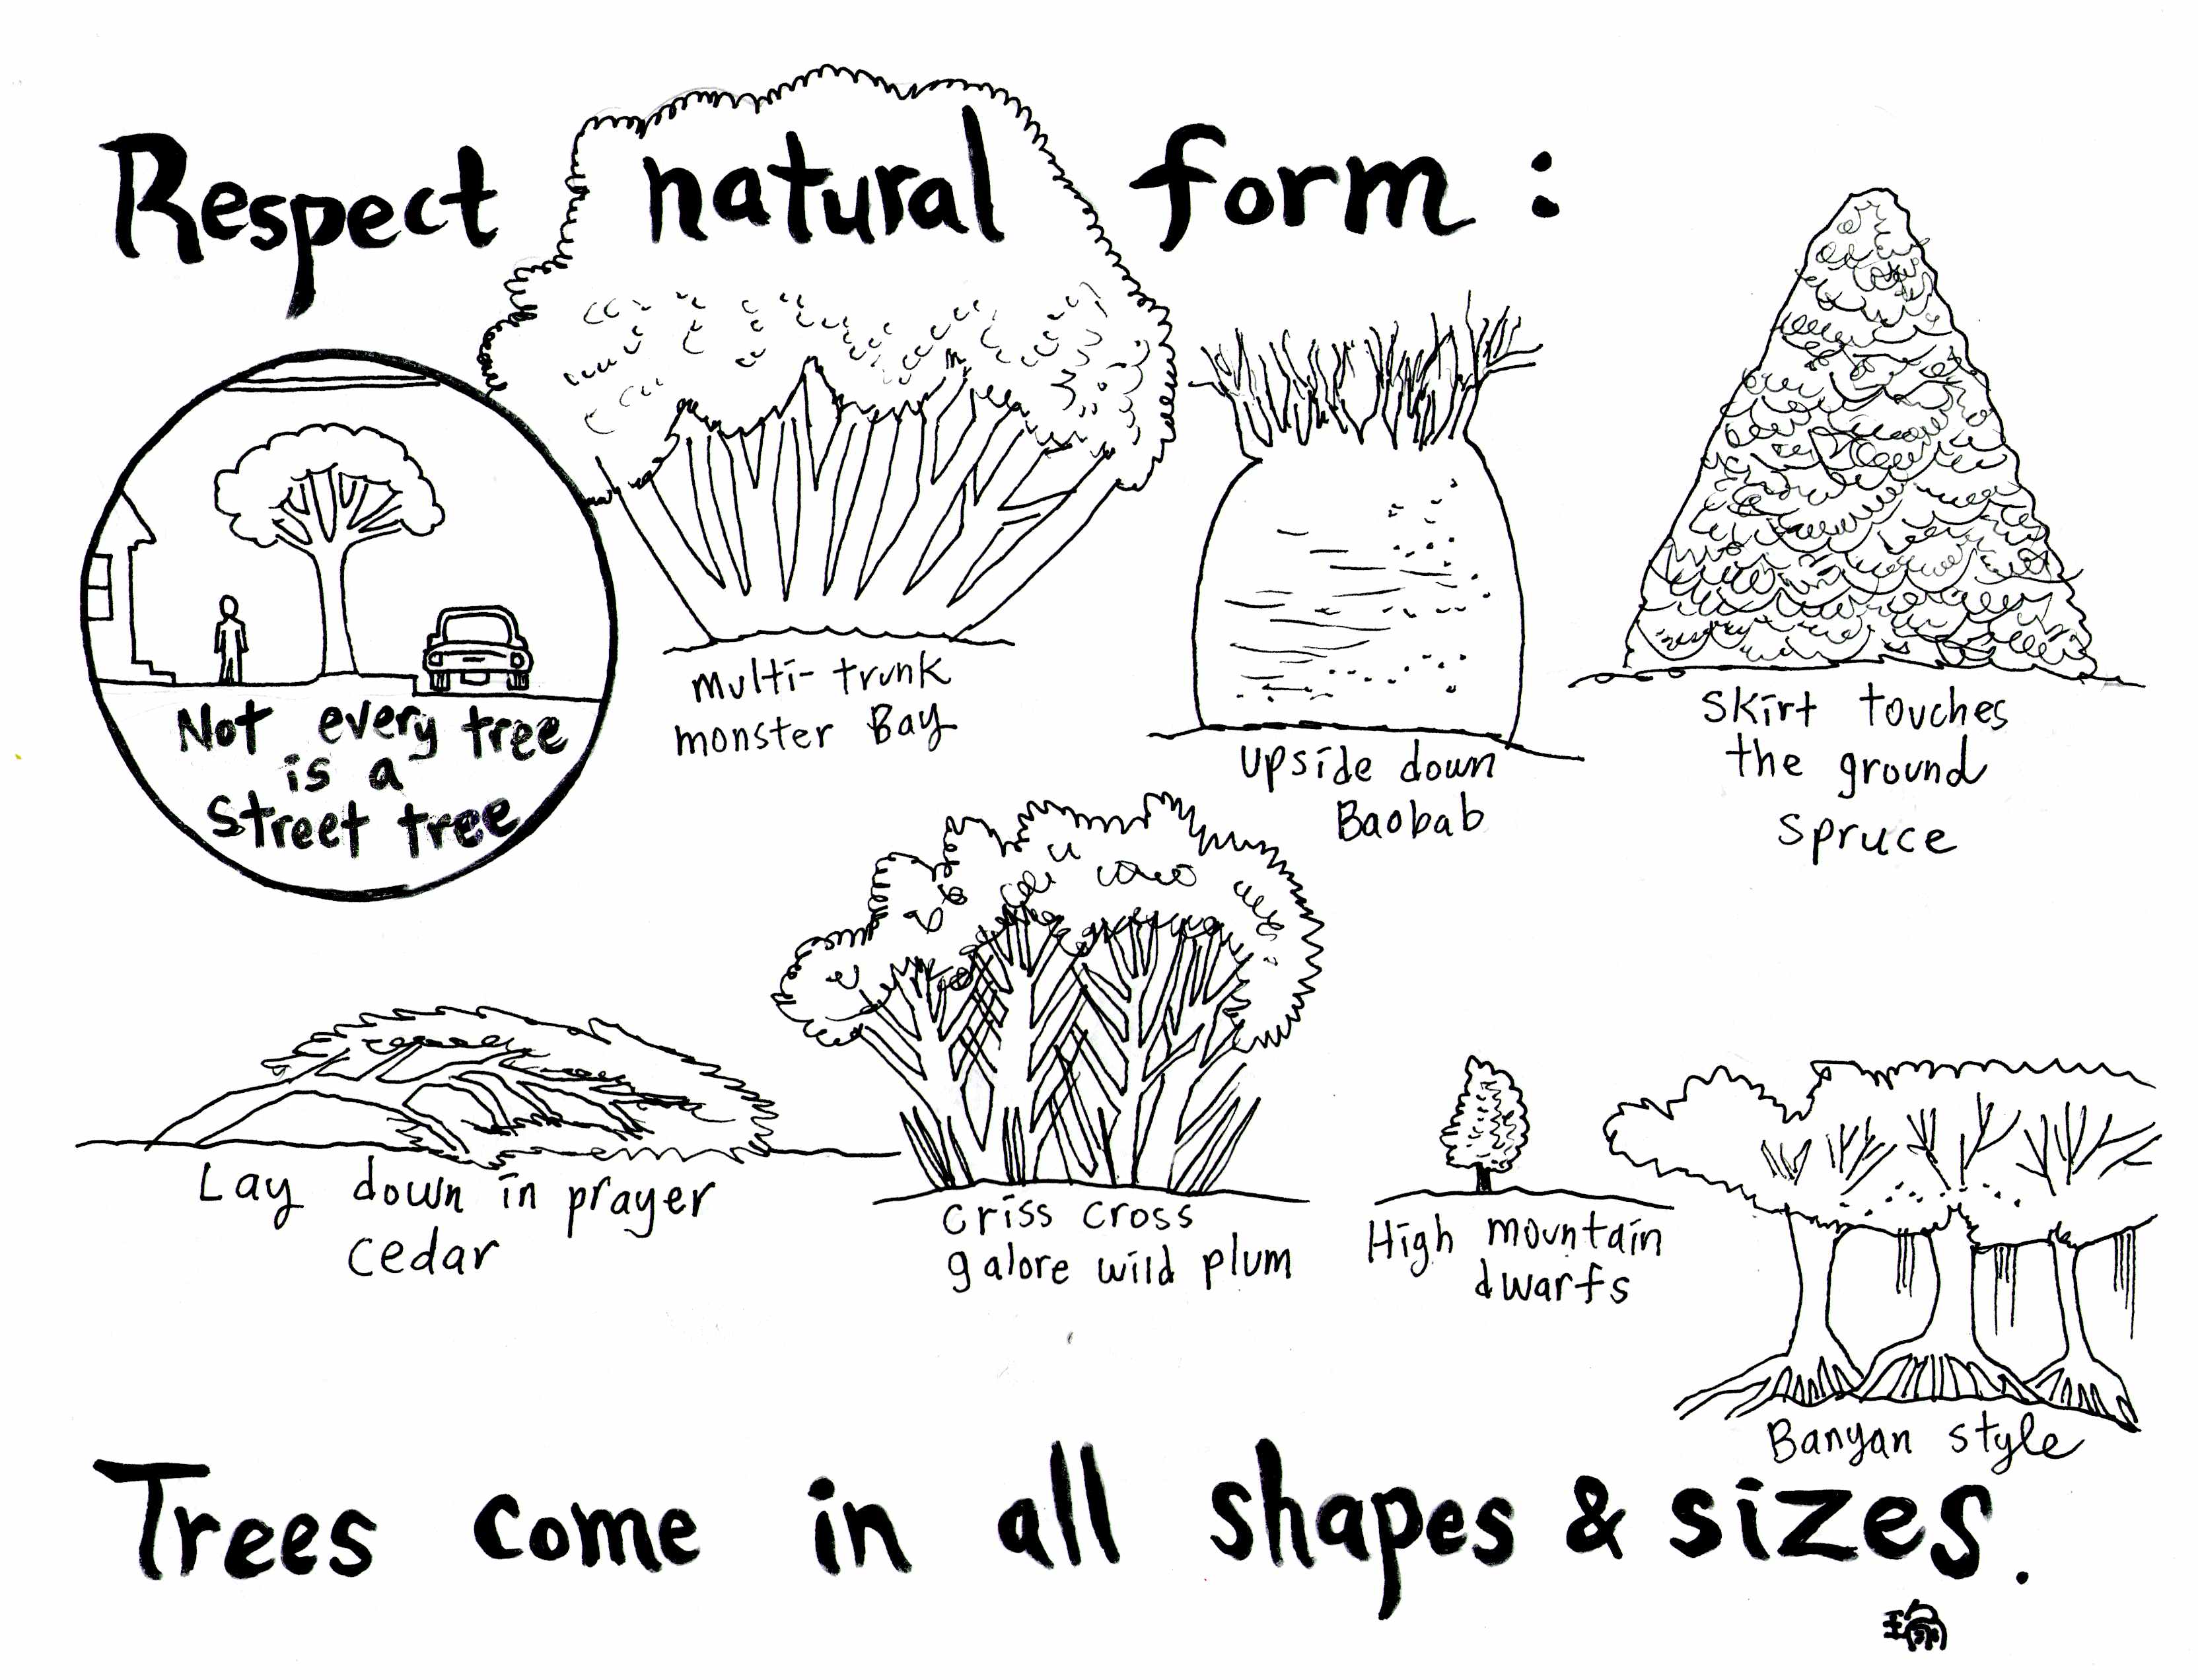 Respect natural form :
Not every tree
is a
street tree
multi-trunk
monster Bay
upside down
Baobab
Skirt touches
the ground
spruce
Lay down in prayer
cedar
criss cross
galore wild plum
High mountain
dwarfs
Banyan style
Trees come in all shapes & sizes.
瑜